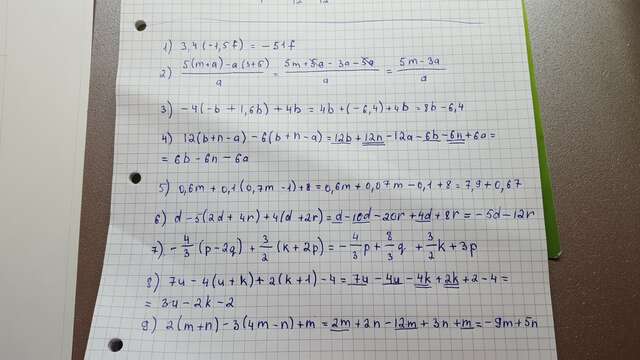 1) 3,4(-1,5f) = -51f
2) (5(m+a)-a(3+5))/a = (5m+5a-3a-5a)/a = (5m-3a)/a
3) -4(-b+1,6b)+4b = 4b+(-6,4)+4b = 8b-6,4
4) 12(b+n-a)-6(b+n-a) = 12b+12n-12a-6b-6n+6a =
= 6b-6n-6a
5) 0,6m+0,1(0,7m-1)+8 = 0,6m+0,07m-0,1+8 = 7,9+0,67
6) d-5(2d+4r)+4(d+2r) = d-10d-20r+4d+8r = -5d-12r
7) -4/3(p-2q)+3/2(k+2p) = -4/3p+8/3q+3/2k+3p
8) 7u-4(u+k)+2(k+1)-4 = 7u-4u-4k+2k+2-4 =
= 3u-2k-2
9) 2(m+n)-3(4m-n)+m = 2m+2n-12m+3n+m = -9m+5n